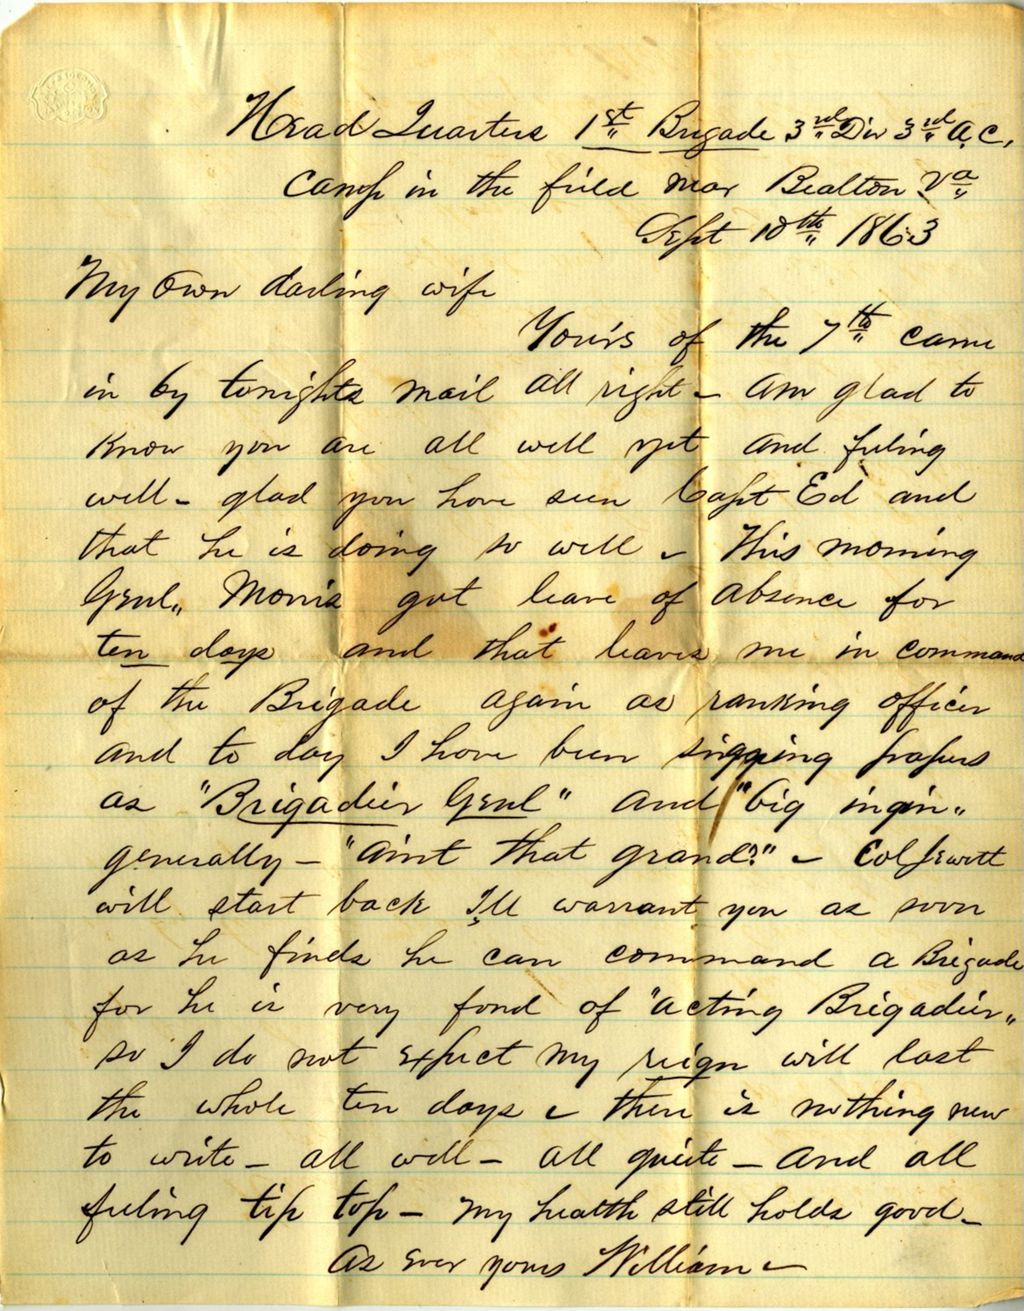 Head Quarters 1st Brigade 3rd Div 3rd A.C.
Camp in the field near Bealton Va
Sept 10th 1863
My Own darling wife
Yours of the 7th came
in by tonights mail all right – am glad to
know you are all well yet and feeling
well – glad you have seen Capt Ed and
that he is doing so well – This morning
Genl,, Morris got leave of absence for
ten days and that leaves me in command
of the Brigade again as ranking officer
and to day I have been signing papers
as "Brigadier Genl" and "big ingin,,
generally – "aint that grand?" – Col Jewett
will start back I'll warrant you as soon
as he finds he can command a Brigade
for he is very fond of "acting Brigadier,,
so I do not expect my reign will last
the whole ten days – there is nothing new
to write – all well – all quiete – and all
feeling tip top – my health still holds good –
As ever yours William –